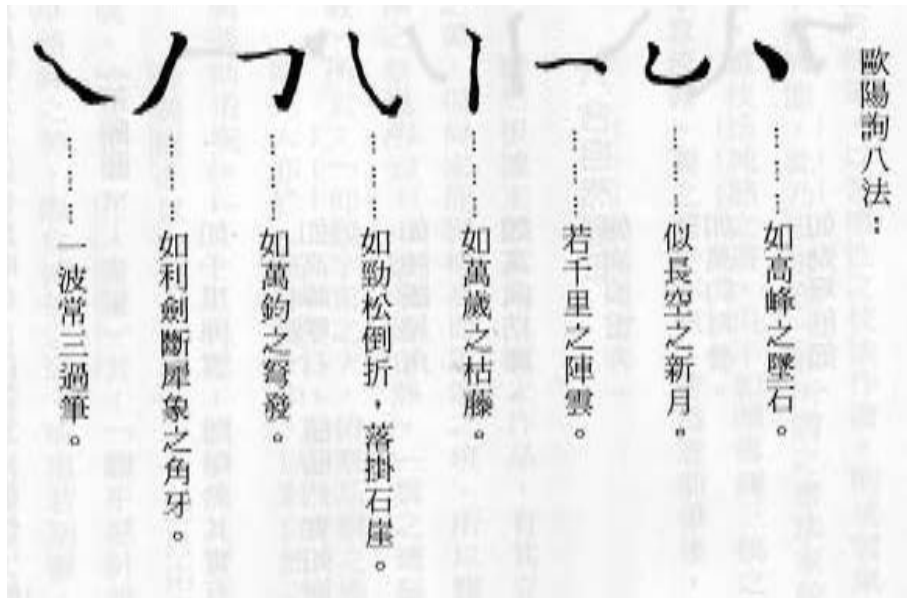 歐陽詢八法：
如高峰之墜石。
似長空之新月。
若千里之陣雲。
如萬歲之枯藤。
如勁松倒折，落掛石崖。
如萬鈞之弩發。
如利劍斷犀象之角牙。
一波常三過筆。